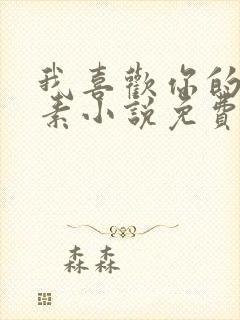 我喜歡你的
素小說免費
森森